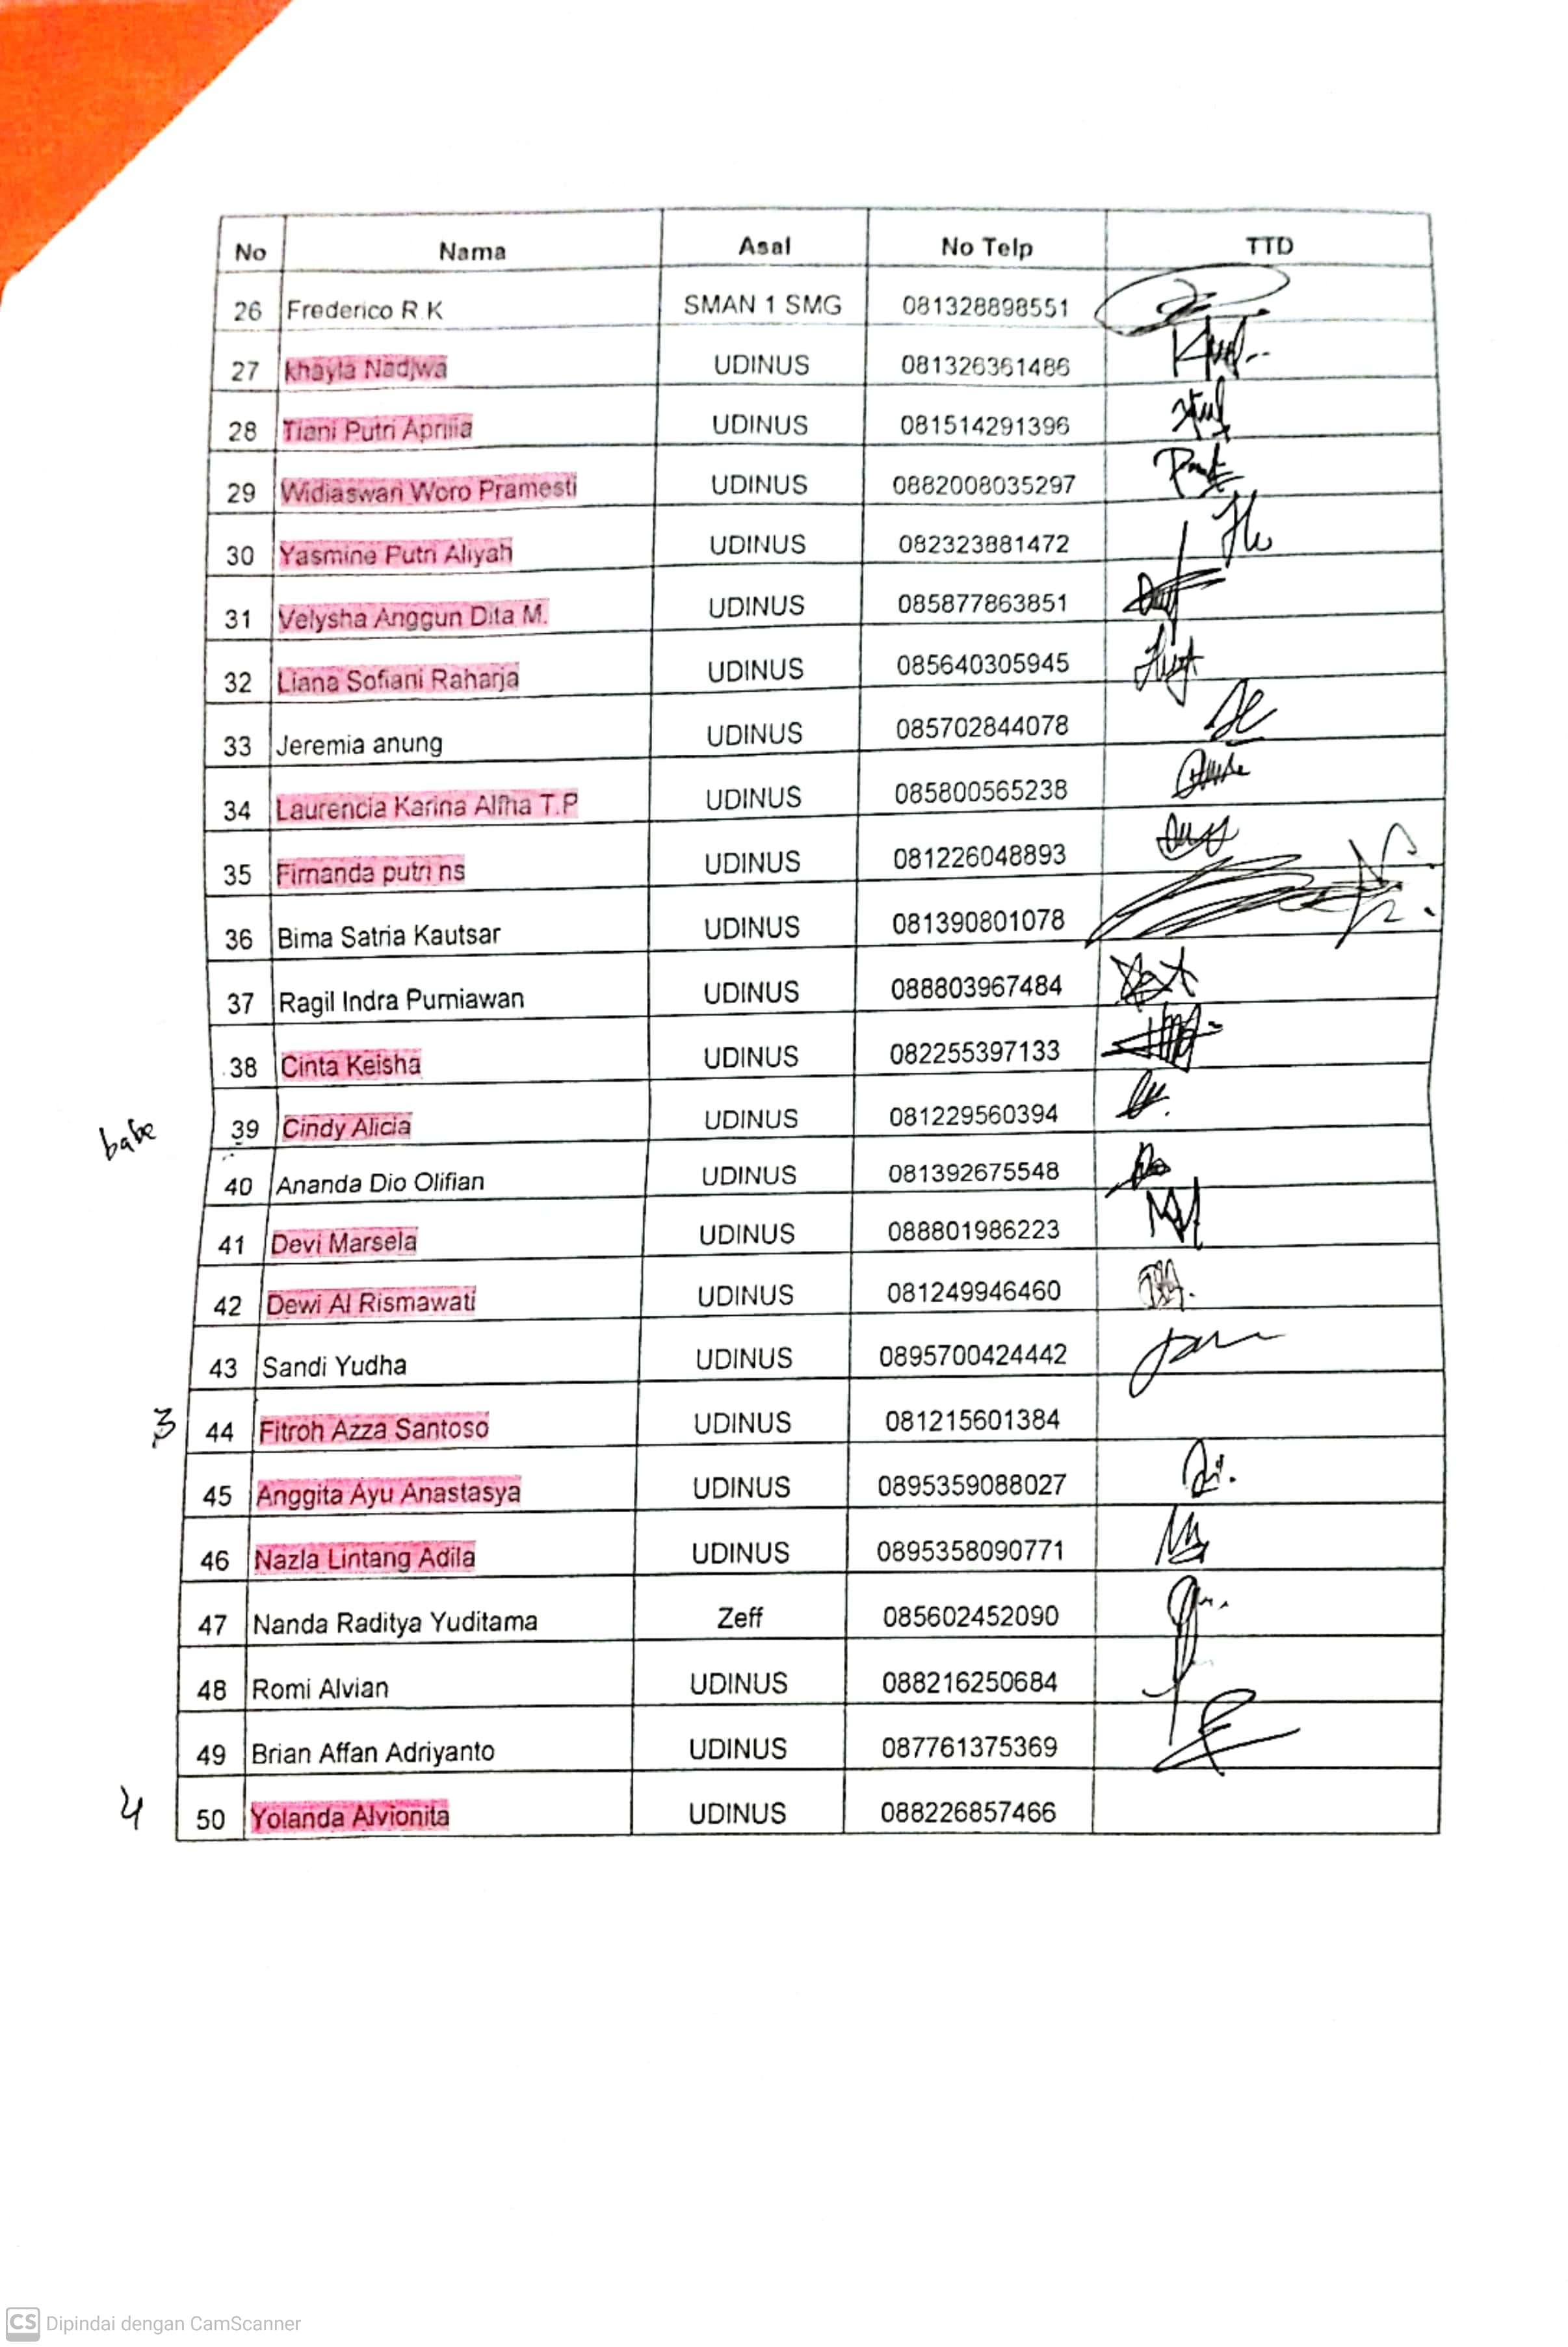 No Nama Asal No Telp TTD
26 Frederico R.K SMAN 1 SMG 081328898551
27 khayla Nadjwa UDINUS 081326361486
28 Tiani Putri Aprilia UDINUS 081514291396
29 Widiaswari Woro Pramesti UDINUS 0882008035297
30 Yasmine Putri Aliyah UDINUS 082323881472
31 Velysha Anggun Dita M. UDINUS 085877863851
32 Liana Sofiani Raharja UDINUS 085640305945
33 Jeremia anung UDINUS 085702844078
34 Laurencia Karina Alfha T.P UDINUS 085800565238
35 Firnanda putri ns UDINUS 081226048893
36 Bima Satria Kautsar UDINUS 081390801078
37 Ragil Indra Purniawan UDINUS 088803967484
38 Cinta Keisha UDINUS 082255397133
babe 39 Cindy Alicia UDINUS 081229560394
40 Ananda Dio Olifian UDINUS 081392675548
41 Devi Marsela UDINUS 088801986223
42 Dewi Al Rismawati UDINUS 081249946460
43 Sandi Yudha UDINUS 0895700424442
3 44 Fitroh Azza Santoso UDINUS 081215601384
45 Anggita Ayu Anastasya UDINUS 0895359088027
46 Nazla Lintang Adila UDINUS 0895358090771
47 Nanda Raditya Yuditama Zeff 085602452090
48 Romi Alvian UDINUS 088216250684
49 Brian Affan Adriyanto UDINUS 087761375369
4 50 Yolanda Alvionita UDINUS 088226857466
CS Dipindai dengan CamScanner